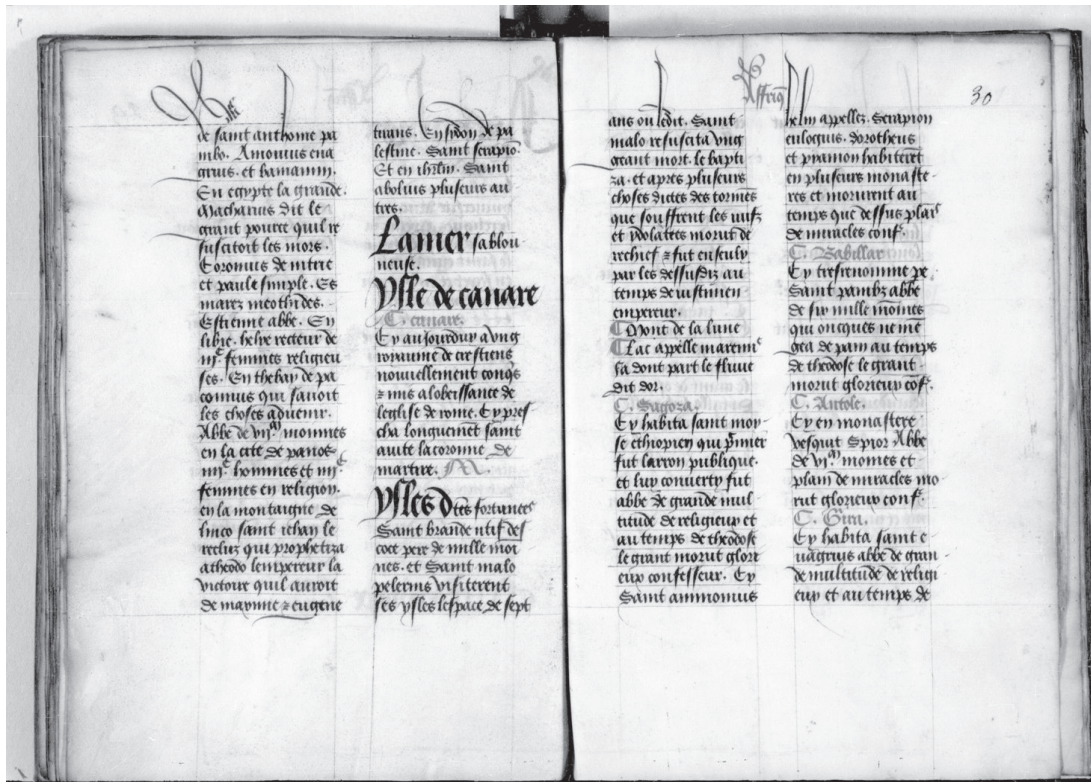 de saint anthoine pa
mbo. Amonius eua
grius. et bamanim.
En egypte la grande.
Macharius dit le
grant pource quil re
suscitoit les mors.
Coronius de nitrie
et paule simple. Es
marez meothides.
Estienne abbe. En
libie. helye recteur de
iijc femmes religieu
ses. En thebay de pa
comius qui savoit
les choses advenir.
Abbe de vijm moinnes
en la cite de panos
iiijc hommes et iiijc
femmes en religion.
en la montaigne de
lineo saint iehan le
recluz qui prophetiza
a theodo lempereur la
victoire quil auroit
de mayme & eugene
tirans. En sidon de pa
lestine. Saint serapio.
Et en ihrlm. Saint
abolius pluseurs au
tres.
La mer sablou-
neuse.
Ysle de canare
C. canare.
Cy aujourduy a vng
royaume de crestiens
nouuellement conqs
& mis a lobeissance de
leglise de rome. Cy pres
cha longuemet saint
auite la coronne de
martire.
Ysles dtes fortunees
Saint brande natif des
coce pere de mille moi
nes. et Saint malo
pelerins visiterent
ses ysles lespace de sept
Affriq
30
ans ou ledit. Saint
malo resuscita vng
geant mort. le bapti
za. et apres pluseurs
choses dictes des tormes
que souffrent les iuifz
et ydolatres morut de
rechief & fut enseuly
par les dessusdiz au
temps de iustinien
empereur.
C Mont de la lune
C Lac appelle marenne
sa dont part le fluue
dit dor.
C. Sagoza.
Cy habita saint moy-
se ethiopien qui pmier
fut larron publique.
et luy conuerty fut
abbe de grande mul-
titude de religieux et
au temps de theodose
le grant morut glori
eux confesseur. Cy
Saint ammonius
helm appellez. Serapion
eulogius. dorotheus
et pyamon habiteret
en pluseurs monaste-
res et morurent au
temps que dessus plais
de miracles conf.
C. Babillar
Cy tresrenomme pe.
Saint pambz abbe
de six mille moines
qui oncques ne me
gea de pain au temps
de theodose le grant.
morut glorieux cof.
C. Antole.
Cy en monastere
vesquit Spior Abbe
de vjm moines et
plain de miracles mo
rut glorieux conf.
C. Gira.
Cy habita saint e
uagrius abbe de gran
de multitude de religi
eux et au temps de